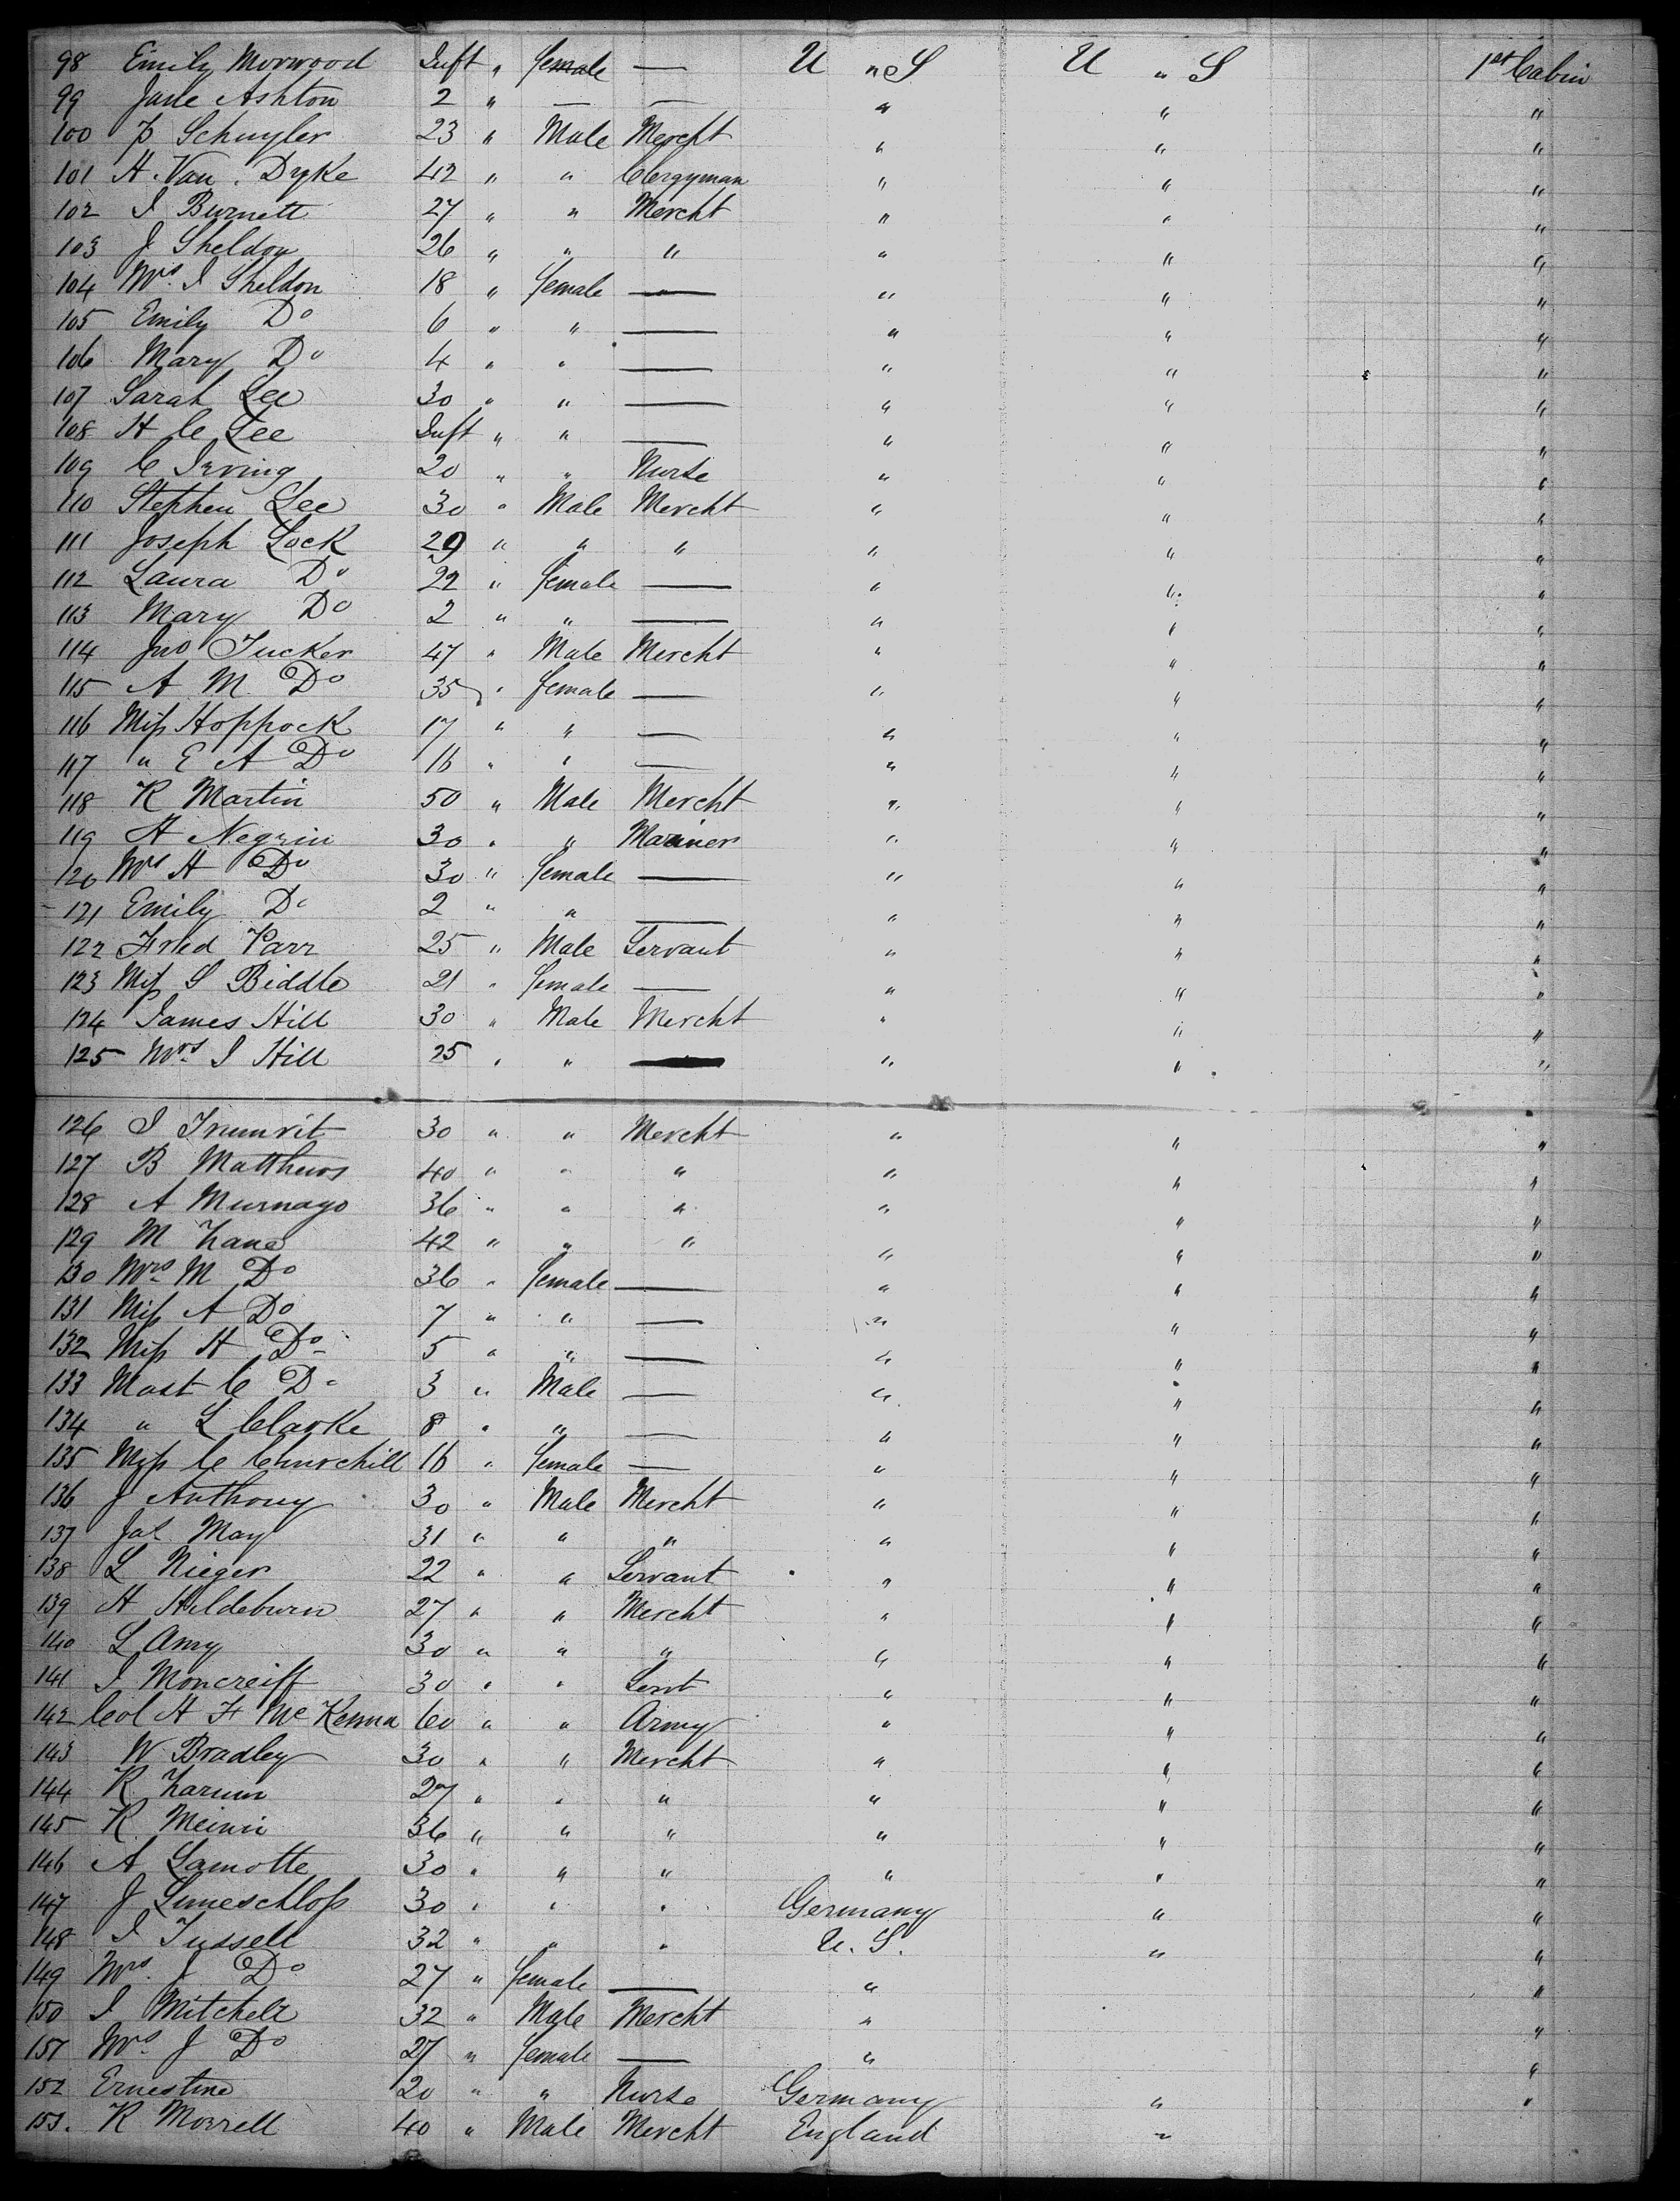 98 Emily Morwood Inft " female — U " S U " S 1st Cabin
99 Jane Ashton 2 " — — " " "
100 P Schuyler 23 " Male Mercht " " "
101 H. Van. Dyke 42 " " Clergyman " " "
102 I Burnett 27 " " Mercht " " "
103 J Sheldon 26 " " " " " "
104 Mrs. I Sheldon 18 " female — " " "
105 Emily Do 6 " " — " " "
106 Mary Do 4 " " — " " "
107 Sarah Lee 30 " " — " " "
108 H C Lee Inft " " — " " "
109 C Irving 20 " " Nurse " " "
110 Stephen Lee 30 " Male Mercht " " "
111 Joseph Lock 29 " " " " " "
112 Laura Do 22 " female — " " "
113 Mary Do 2 " " — " " "
114 Jno Tucker 47 " Male Mercht " " "
115 A M Do 35 " female — " " "
116 Miss Hoppock 17 " " — " " "
117 " E A Do 16 " " — " " "
118 R Martin 50 " Male Mercht " " "
119 A Negrin 30 " " Mariner " " "
120 Mrs A Do 30 " female — " " "
121 Emily Do 2 " " — " " "
122 Fred Parr 25 " Male Servant " " "
123 Miss S Biddle 21 " female — " " "
124 James Hill 30 " Male Mercht " " "
125 Mrs I Hill 25 " " — " " "
126 I 30 " " Mercht " " "
127 B Matthews 40 " " " " " "
128 A Murnago 36 " " " " " "
129 M Zane 42 " " " " " "
130 Mrs M Do 36 " female — " " "
131 Miss A Do 7 " " — " " "
132 Miss H Do 5 " " — " " "
133 Mast C Do 3 " Male — " " "
134 " L Clarke 8 " " — " " "
135 Miss C Churchill 16 " female — " " "
136 J Anthony 30 " Male Mercht " " "
137 Jas May 31 " " " " " "
138 L Nieger 22 " " Servant " " "
139 H Hildeburn 27 " " Mercht " " "
140 L Amy 30 " " " " " "
141 I Moncreiff 30 " " Servt " " "
142 Col H F McKenna 60 " " Army " " "
143 W Bradley 30 " " Mercht " " "
144 R Zarum 27 " " " " " "
145 R 36 " " " " " "
146 A Lamotte 30 " " " " " "
147 J Limeschloss 30 " " " Germany " "
148 I Tussell 32 " " " U. S. " "
149 Mrs. J Do 27 " female — " "
150 I Mitchell 32 " Male Mercht " "
151 Mrs J Do 27 " female — " "
152 Ernestine 20 " " Nurse Germany " "
153. R Morrell 40 " Male Mercht England "